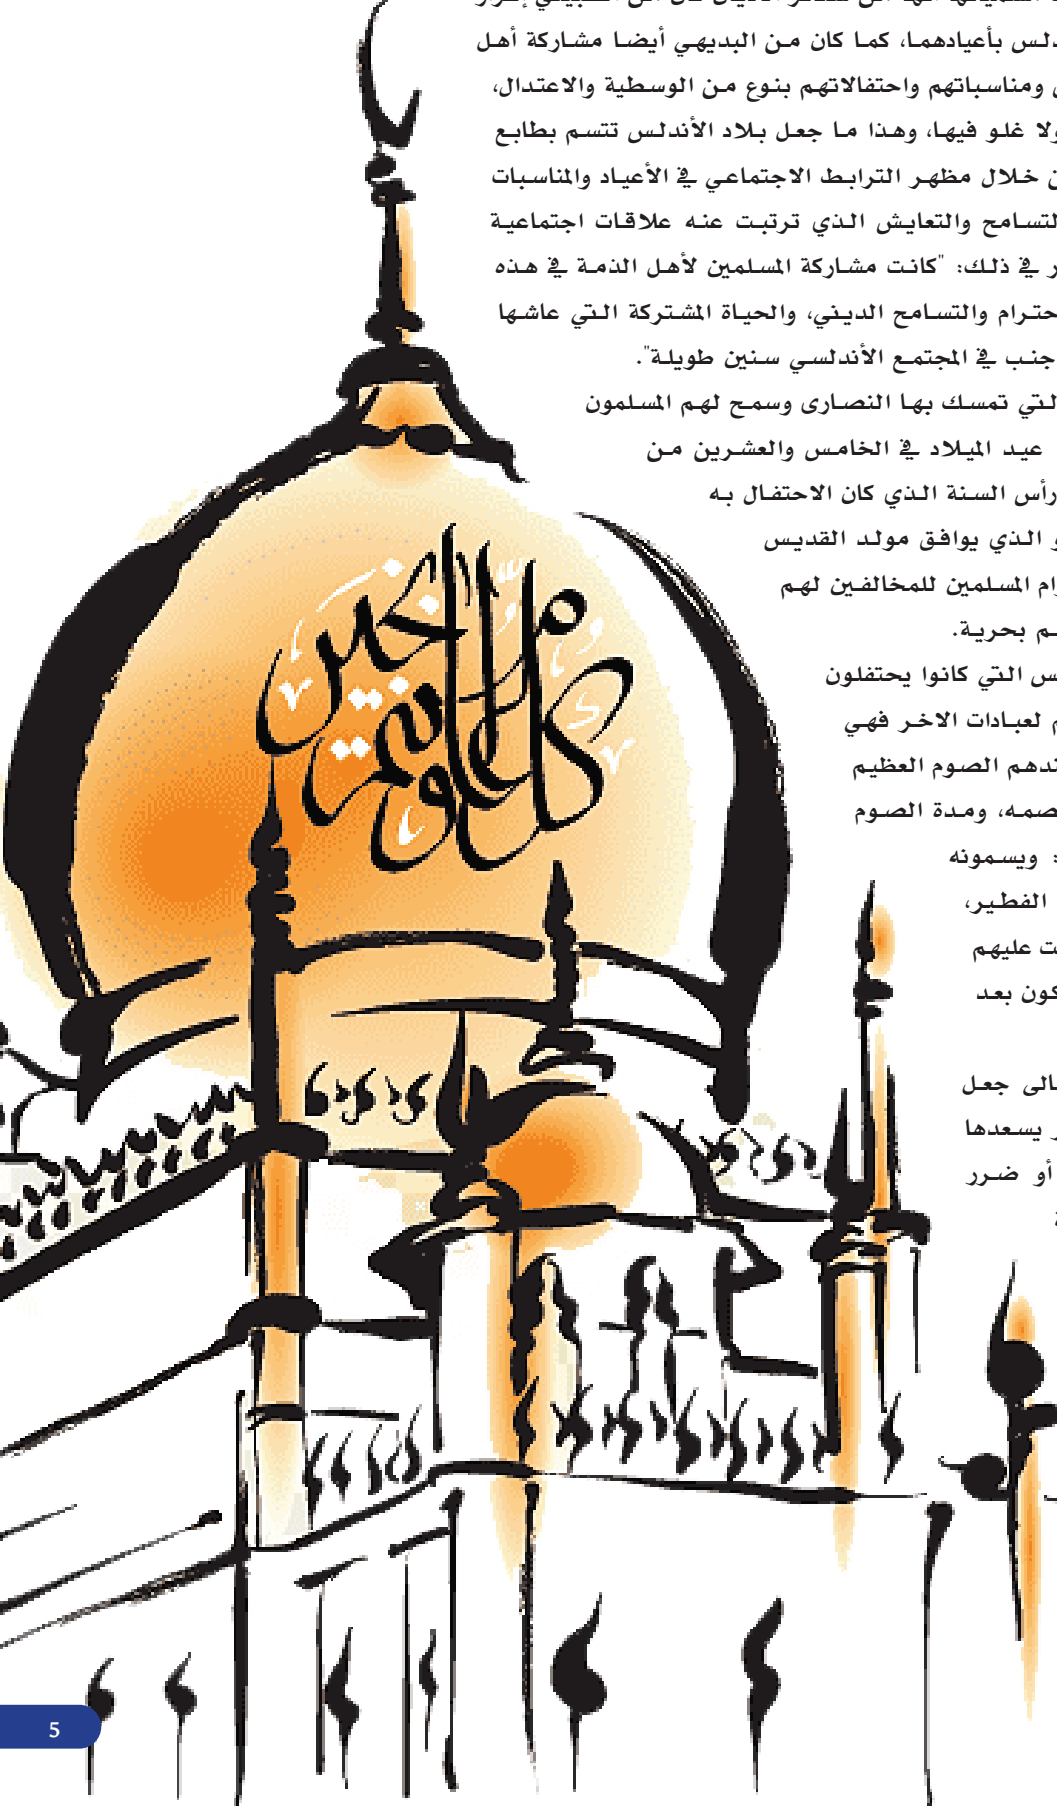 دلس بأعيادهما، كما كان من البديهي أيضا مشاركة أهل
ومناسباتهم واحتفالاتهم بنوع من الوسطية والاعتدال،
ولا غلو فيها، وهذا ما جعل بلاد الأندلس تتسم بطابع
خلال مظهر الترابط الاجتماعي في الأعياد والمناسبات
لتسامح والتعايش الذي ترتبت عنه علاقات اجتماعية
ر في ذلك: "كانت مشاركة المسلمين لأهل الذمة في هذه
حترام والتسامح الديني، والحياة المشتركة التي عاشها
جنب في المجتمع الأندلسي سنين طويلة".
لتي تمسك بها النصارى وسمح لهم المسلمون
عيد الميلاد في الخامس والعشرين من
رأس السنة الذي كان الاحتفال به
و الذي يوافق مولد القديس
رام المسلمين للمخالفين لهم
ـم بحرية.
س التي كانوا يحتفلون
م لعبادات الاخر فهي
ندهم الصوم العظيم
صمه، ومدة الصوم
: ويسمونه
الفطير،
ت عليهم
كون بعد
الى جعل
ر يسعدها
أو ضرر
ة
كل عام وأنتم بخير
5